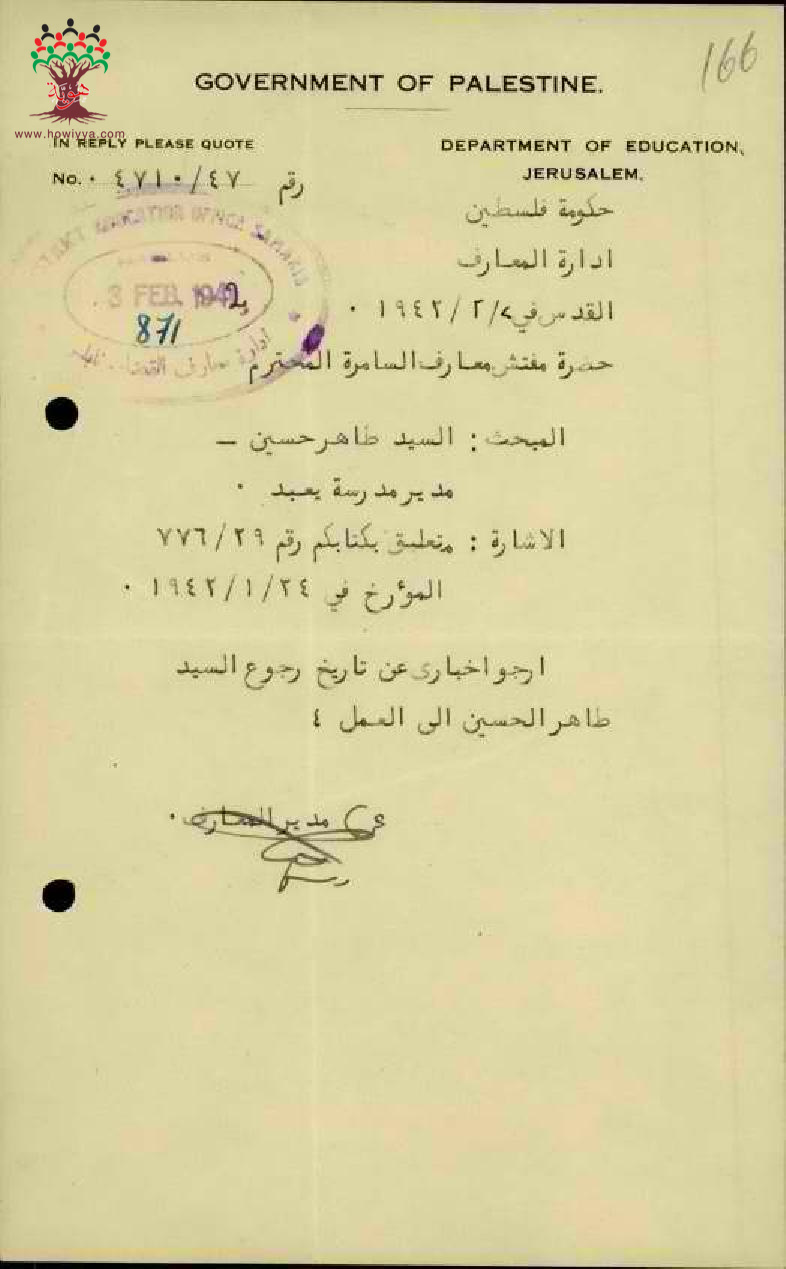 166
GOVERNMENT OF PALESTINE.
هوية
www.howiyya.com
IN REPLY PLEASE QUOTE
DEPARTMENT OF EDUCATION,
JERUSALEM.
No. ٤٧١٠/٤٧ رقم
حكومة فلسطين
DISTRICT EDUCATION OFFICE SAMARIA
ادارة المعارف
3 FEB. 1942
القدس في ٢/٢/١٩٤٢ ٠
871
ادارة معارف القضاء
حضرة مفتش معارف السامرة المحترم
المبحث : السيد طاهر حسين –
مدير مدرسة يعبد ٠
الاشارة : متعلق بكتابكم رقم ٧٧٦/٢٩
المؤرخ في ١٩٤٢/١/٢٤ ٠
ارجو اخباري عن تاريخ رجوع السيد
طاهر الحسين الى العمل ٤
عن مدير المعارف ٠